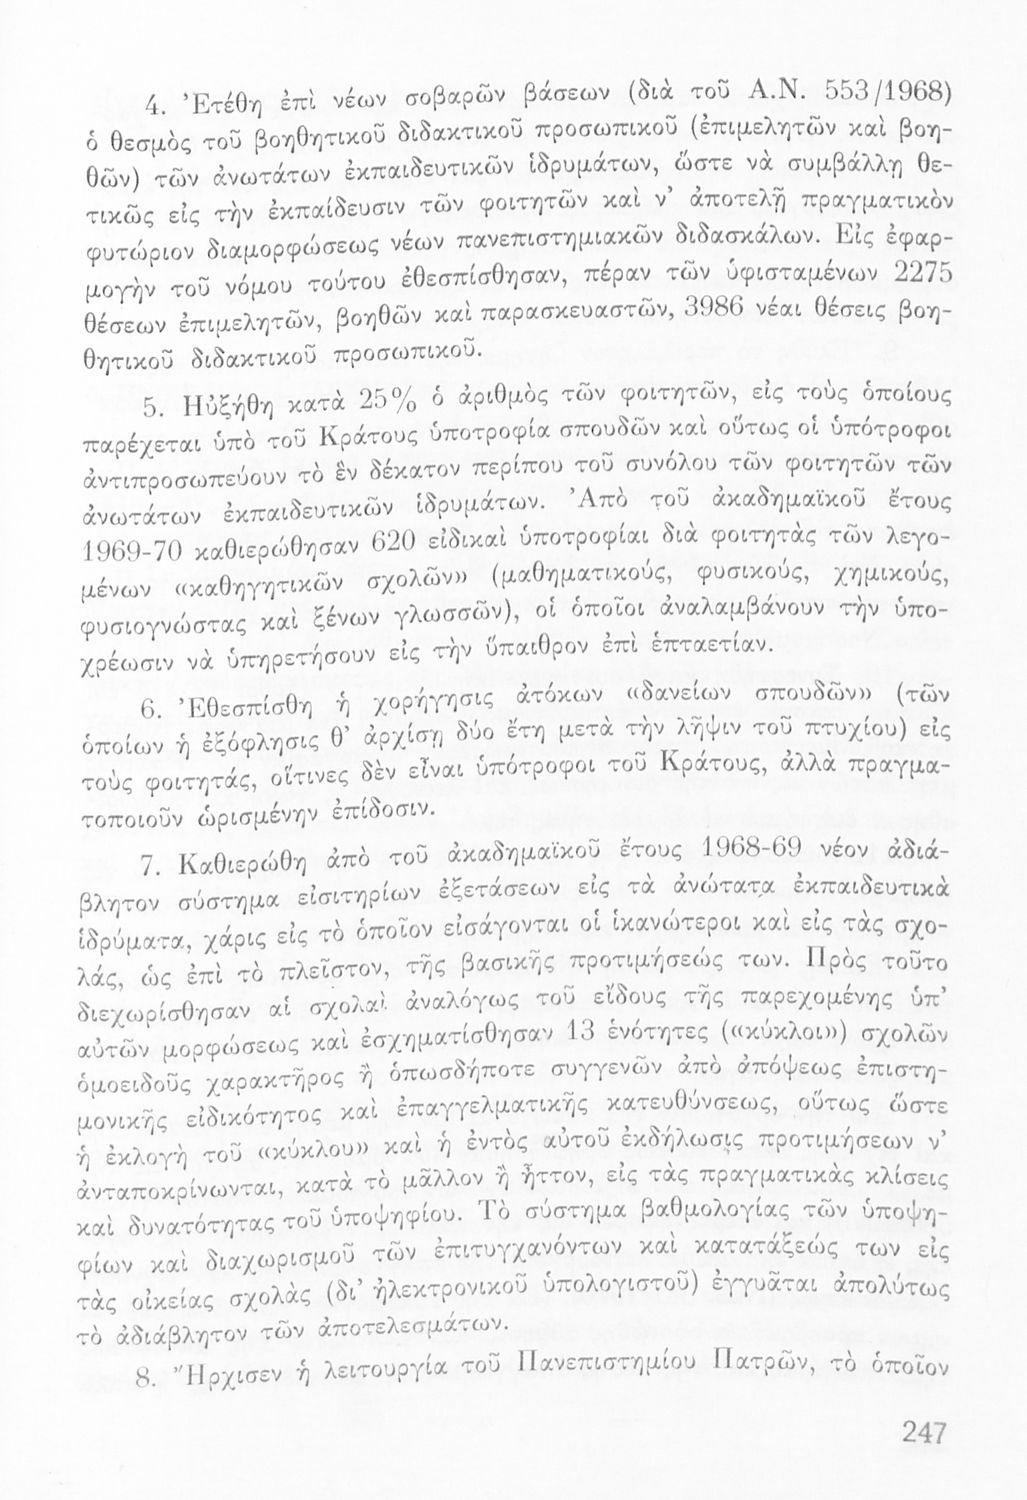 4. Ἐτέθη ἐπὶ νέων σοβαρῶν βάσεων (διὰ τοῦ Α.Ν. 553/1968)
ὁ θεσμὸς τοῦ βοηθητικοῦ διδακτικοῦ προσωπικοῦ (ἐπιμελητῶν καὶ βοη-
θῶν) τῶν ἀνωτάτων ἐκπαιδευτικῶν ἱδρυμάτων, ὥστε νὰ συμβάλλῃ θε-
τικῶς εἰς τὴν ἐκπαίδευσιν τῶν φοιτητῶν καὶ ν’ ἀποτελῇ πραγματικὸν
φυτώριον διαμορφώσεως νέων πανεπιστημιακῶν διδασκάλων. Εἰς ἐφαρ-
μογὴν τοῦ νόμου τούτου ἐθεσπίσθησαν, πέραν τῶν ὑφισταμένων 2275
θέσεων ἐπιμελητῶν, βοηθῶν καὶ παρασκευαστῶν, 3986 νέαι θέσεις βοη-
θητικοῦ διδακτικοῦ προσωπικοῦ.
5. Ηὐξήθη κατὰ 25% ὁ ἀριθμὸς τῶν φοιτητῶν, εἰς τοὺς ὁποίους
παρέχεται ὑπὸ τοῦ Κράτους ὑποτροφία σπουδῶν καὶ οὕτως οἱ ὑπότροφοι
ἀντιπροσωπεύουν τὸ ἓν δέκατον περίπου τοῦ συνόλου τῶν φοιτητῶν τῶν
ἀνωτάτων ἐκπαιδευτικῶν ἱδρυμάτων. Ἀπὸ τοῦ ἀκαδημαϊκοῦ ἔτους
1969-70 καθιερώθησαν 620 εἰδικαὶ ὑποτροφίαι διὰ φοιτητὰς τῶν λεγο-
μένων «καθηγητικῶν σχολῶν» (μαθηματικούς, φυσικούς, χημικούς,
φυσιογνώστας καὶ ξένων γλωσσῶν), οἱ ὁποῖοι ἀναλαμβάνουν τὴν ὑπο-
χρέωσιν νὰ ὑπηρετήσουν εἰς τὴν ὕπαιθρον ἐπὶ ἑπταετίαν.
6. Ἐθεσπίσθη ἡ χορήγησις ἀτόκων «δανείων σπουδῶν» (τῶν
ὁποίων ἡ ἐξόφλησις θ’ ἀρχίσῃ δύο ἔτη μετὰ τὴν λῆψιν τοῦ πτυχίου) εἰς
τοὺς φοιτητάς, οἵτινες δὲν εἶναι ὑπότροφοι τοῦ Κράτους, ἀλλὰ πραγμα-
τοποιοῦν ὡρισμένην ἐπίδοσιν.
7. Καθιερώθη ἀπὸ τοῦ ἀκαδημαϊκοῦ ἔτους 1968-69 νέον ἀδιά-
βλητον σύστημα εἰσιτηρίων ἐξετάσεων εἰς τὰ ἀνώτατα ἐκπαιδευτικὰ
ἱδρύματα, χάρις εἰς τὸ ὁποῖον εἰσάγονται οἱ ἱκανώτεροι καὶ εἰς τὰς σχο-
λάς, ὡς ἐπὶ τὸ πλεῖστον, τῆς βασικῆς προτιμήσεώς των. Πρὸς τοῦτο
διεχωρίσθησαν αἱ σχολαὶ ἀναλόγως τοῦ εἴδους τῆς παρεχομένης ὑπ’
αὐτῶν μορφώσεως καὶ ἐσχηματίσθησαν 13 ἑνότητες («κύκλοι») σχολῶν
ὁμοειδοῦς χαρακτῆρος ἢ ὁπωσδήποτε συγγενῶν ἀπὸ ἀπόψεως ἐπιστη-
μονικῆς εἰδικότητος καὶ ἐπαγγελματικῆς κατευθύνσεως, οὕτως ὥστε
ἡ ἐκλογὴ τοῦ «κύκλου» καὶ ἡ ἐντὸς αὐτοῦ ἐκδήλωσις προτιμήσεων ν’
ἀνταποκρίνωνται, κατὰ τὸ μᾶλλον ἢ ἧττον, εἰς τὰς πραγματικὰς κλίσεις
καὶ δυνατότητας τοῦ ὑποψηφίου. Τὸ σύστημα βαθμολογίας τῶν ὑποψη-
φίων καὶ διαχωρισμοῦ τῶν ἐπιτυγχανόντων καὶ κατατάξεώς των εἰς
τὰς οἰκείας σχολὰς (δι’ ἠλεκτρονικοῦ ὑπολογιστοῦ) ἐγγυᾶται ἀπολύτως
τὸ ἀδιάβλητον τῶν ἀποτελεσμάτων.
8. Ἤρχισεν ἡ λειτουργία τοῦ Πανεπιστημίου Πατρῶν, τὸ ὁποῖον
247